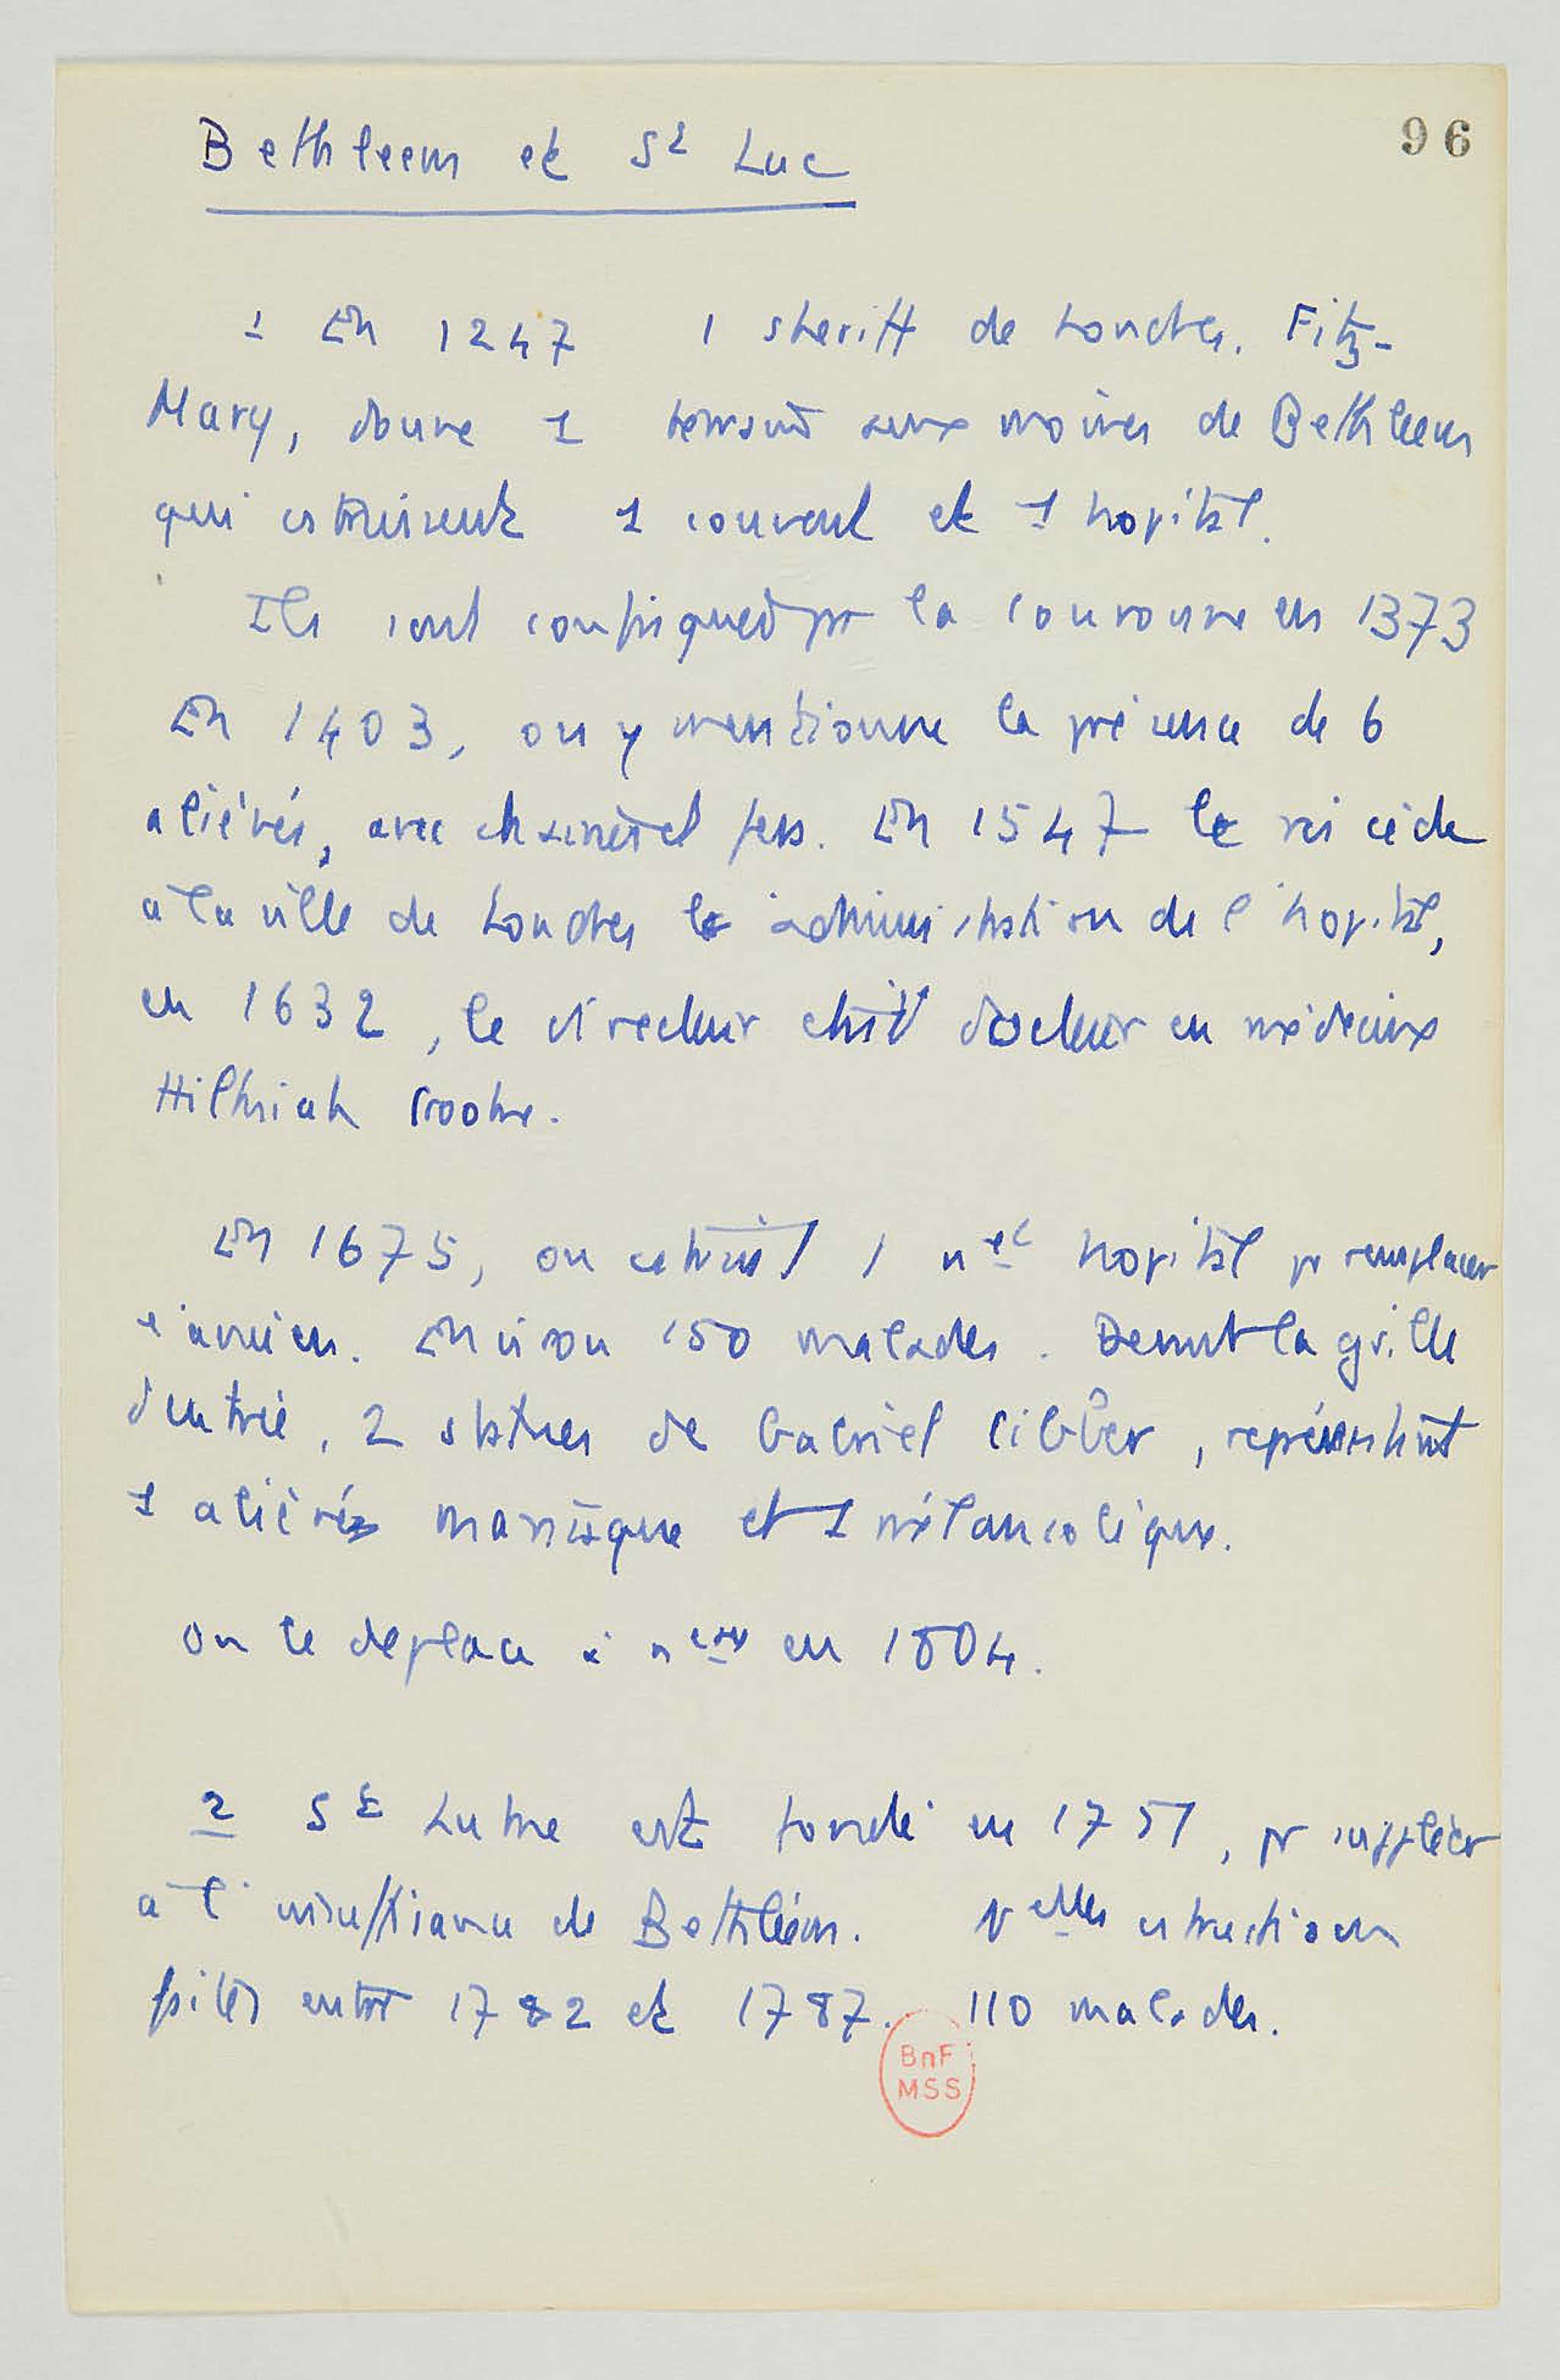 96
Bethleem et St Luc
1 En 1247 1 sheriff de Londres, Fitz-
Mary, donne 1 terrain aux moines de Bethleem
qui cstruisent 1 couvent et 1 hopital.
Ils sont confisqués pr la couronne en 1373
En 1403, on y mentionne la présence de 6
aliénés, avec chaînes et fers. En 1547 le roi cède
à la ville de Londres le administration de l'hopital,
en 1632, le directeur était docteur en médecine
Hilkiah Crooke.
En 1675, on cstruit 1 nel hopital pr remplacer
l'ancien. Environ 150 malades. Devant la grille
d'entrée, 2 statues de Gabriel Cibber, représentant
1 aliéné maniaque et 1 mélancolique.
On le déplace à neau en 1804.
2 St Luke est fondé en 1751, pr suppléer
à l'insuffisance de Bethléem. Nelles cstructions
faites entre 1782 et 1787. 110 malades.
BnF
MSS